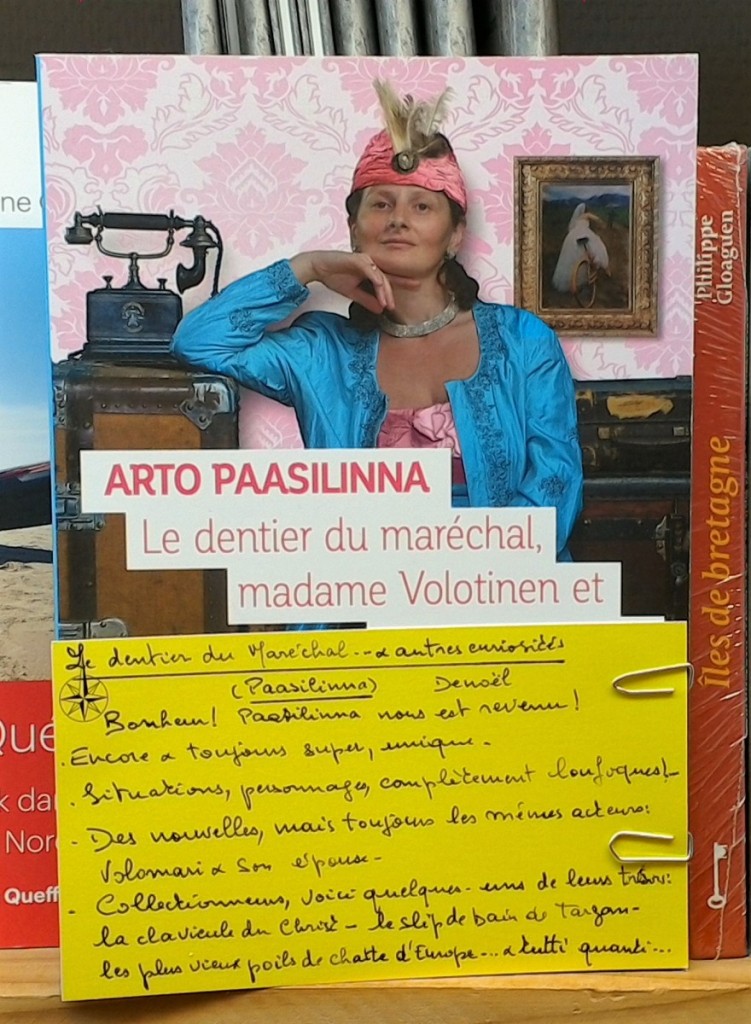 ARTO PAASILINNA
Le dentier du maréchal,
madame Volotinen et
Le dentier du Maréchal... & autres curiosités
(Paasilinna) Denoël
Bonheur! Paasilinna nous est revenu!
. Encore & toujours super, unique.
. Situations, personnages, complètement loufoques!
- Des nouvelles, mais toujours les mêmes acteurs:
Volomari & son épouse -
- Collectionneurs, voici quelques-uns de leurs trésors:
la clavicule du Christ - le slip de bain de Tarzan -
les plus vieux poils de chatte d'Europe... & tutti quanti...
Philippe
Gloaguen
Îles de bretagne
ne
Qué
k da
Nor
Queff